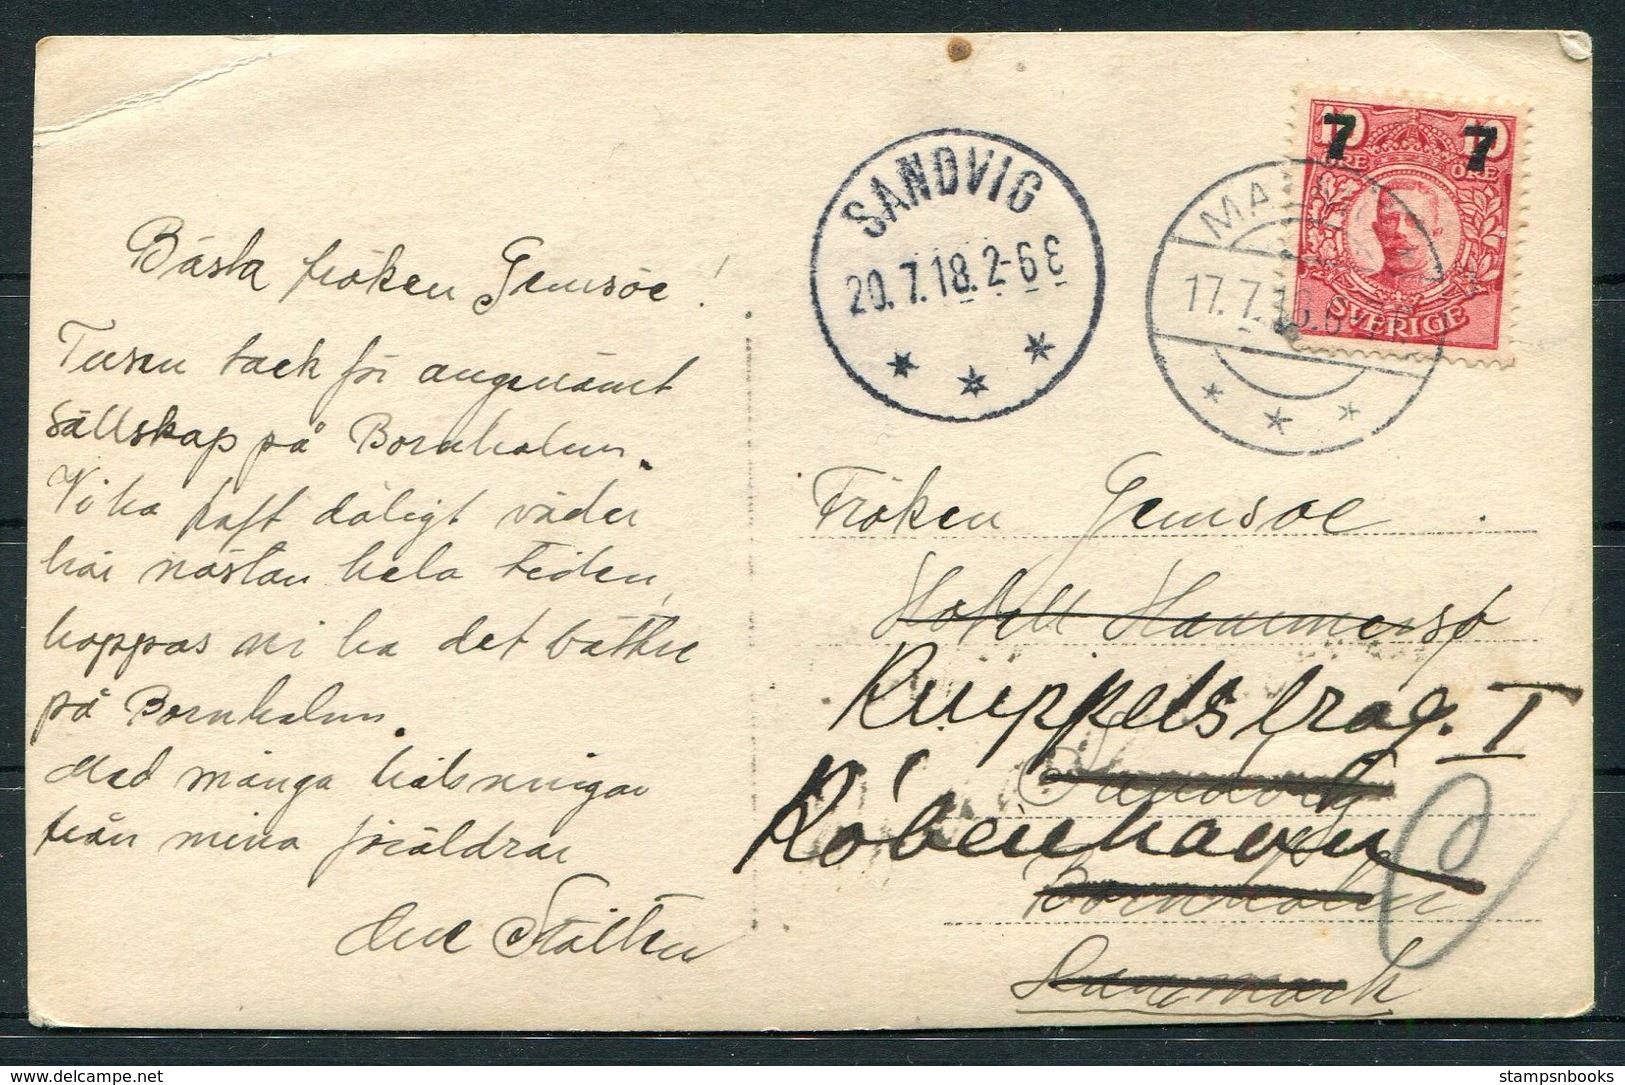 Bästa fröken Gemsöe!
Tusen tack för angenämt
sällskap på Bornholm.
Vi ha haft dåligt väder
här nästan hela tiden,
hoppas ni ha det bättre
på Bornholm.
Med många hälsningar
från mina föräldrar
SANDVIG
20.7.18.2-6E
17.7.18.6
10 10
7 7
ÖRE ÖRE
SVERIGE
Fröken Gemsoe
Hotell Hammersø
I
Sandvig
København
Bornholm
Danmark
stampsnbooks
© delcampe.net